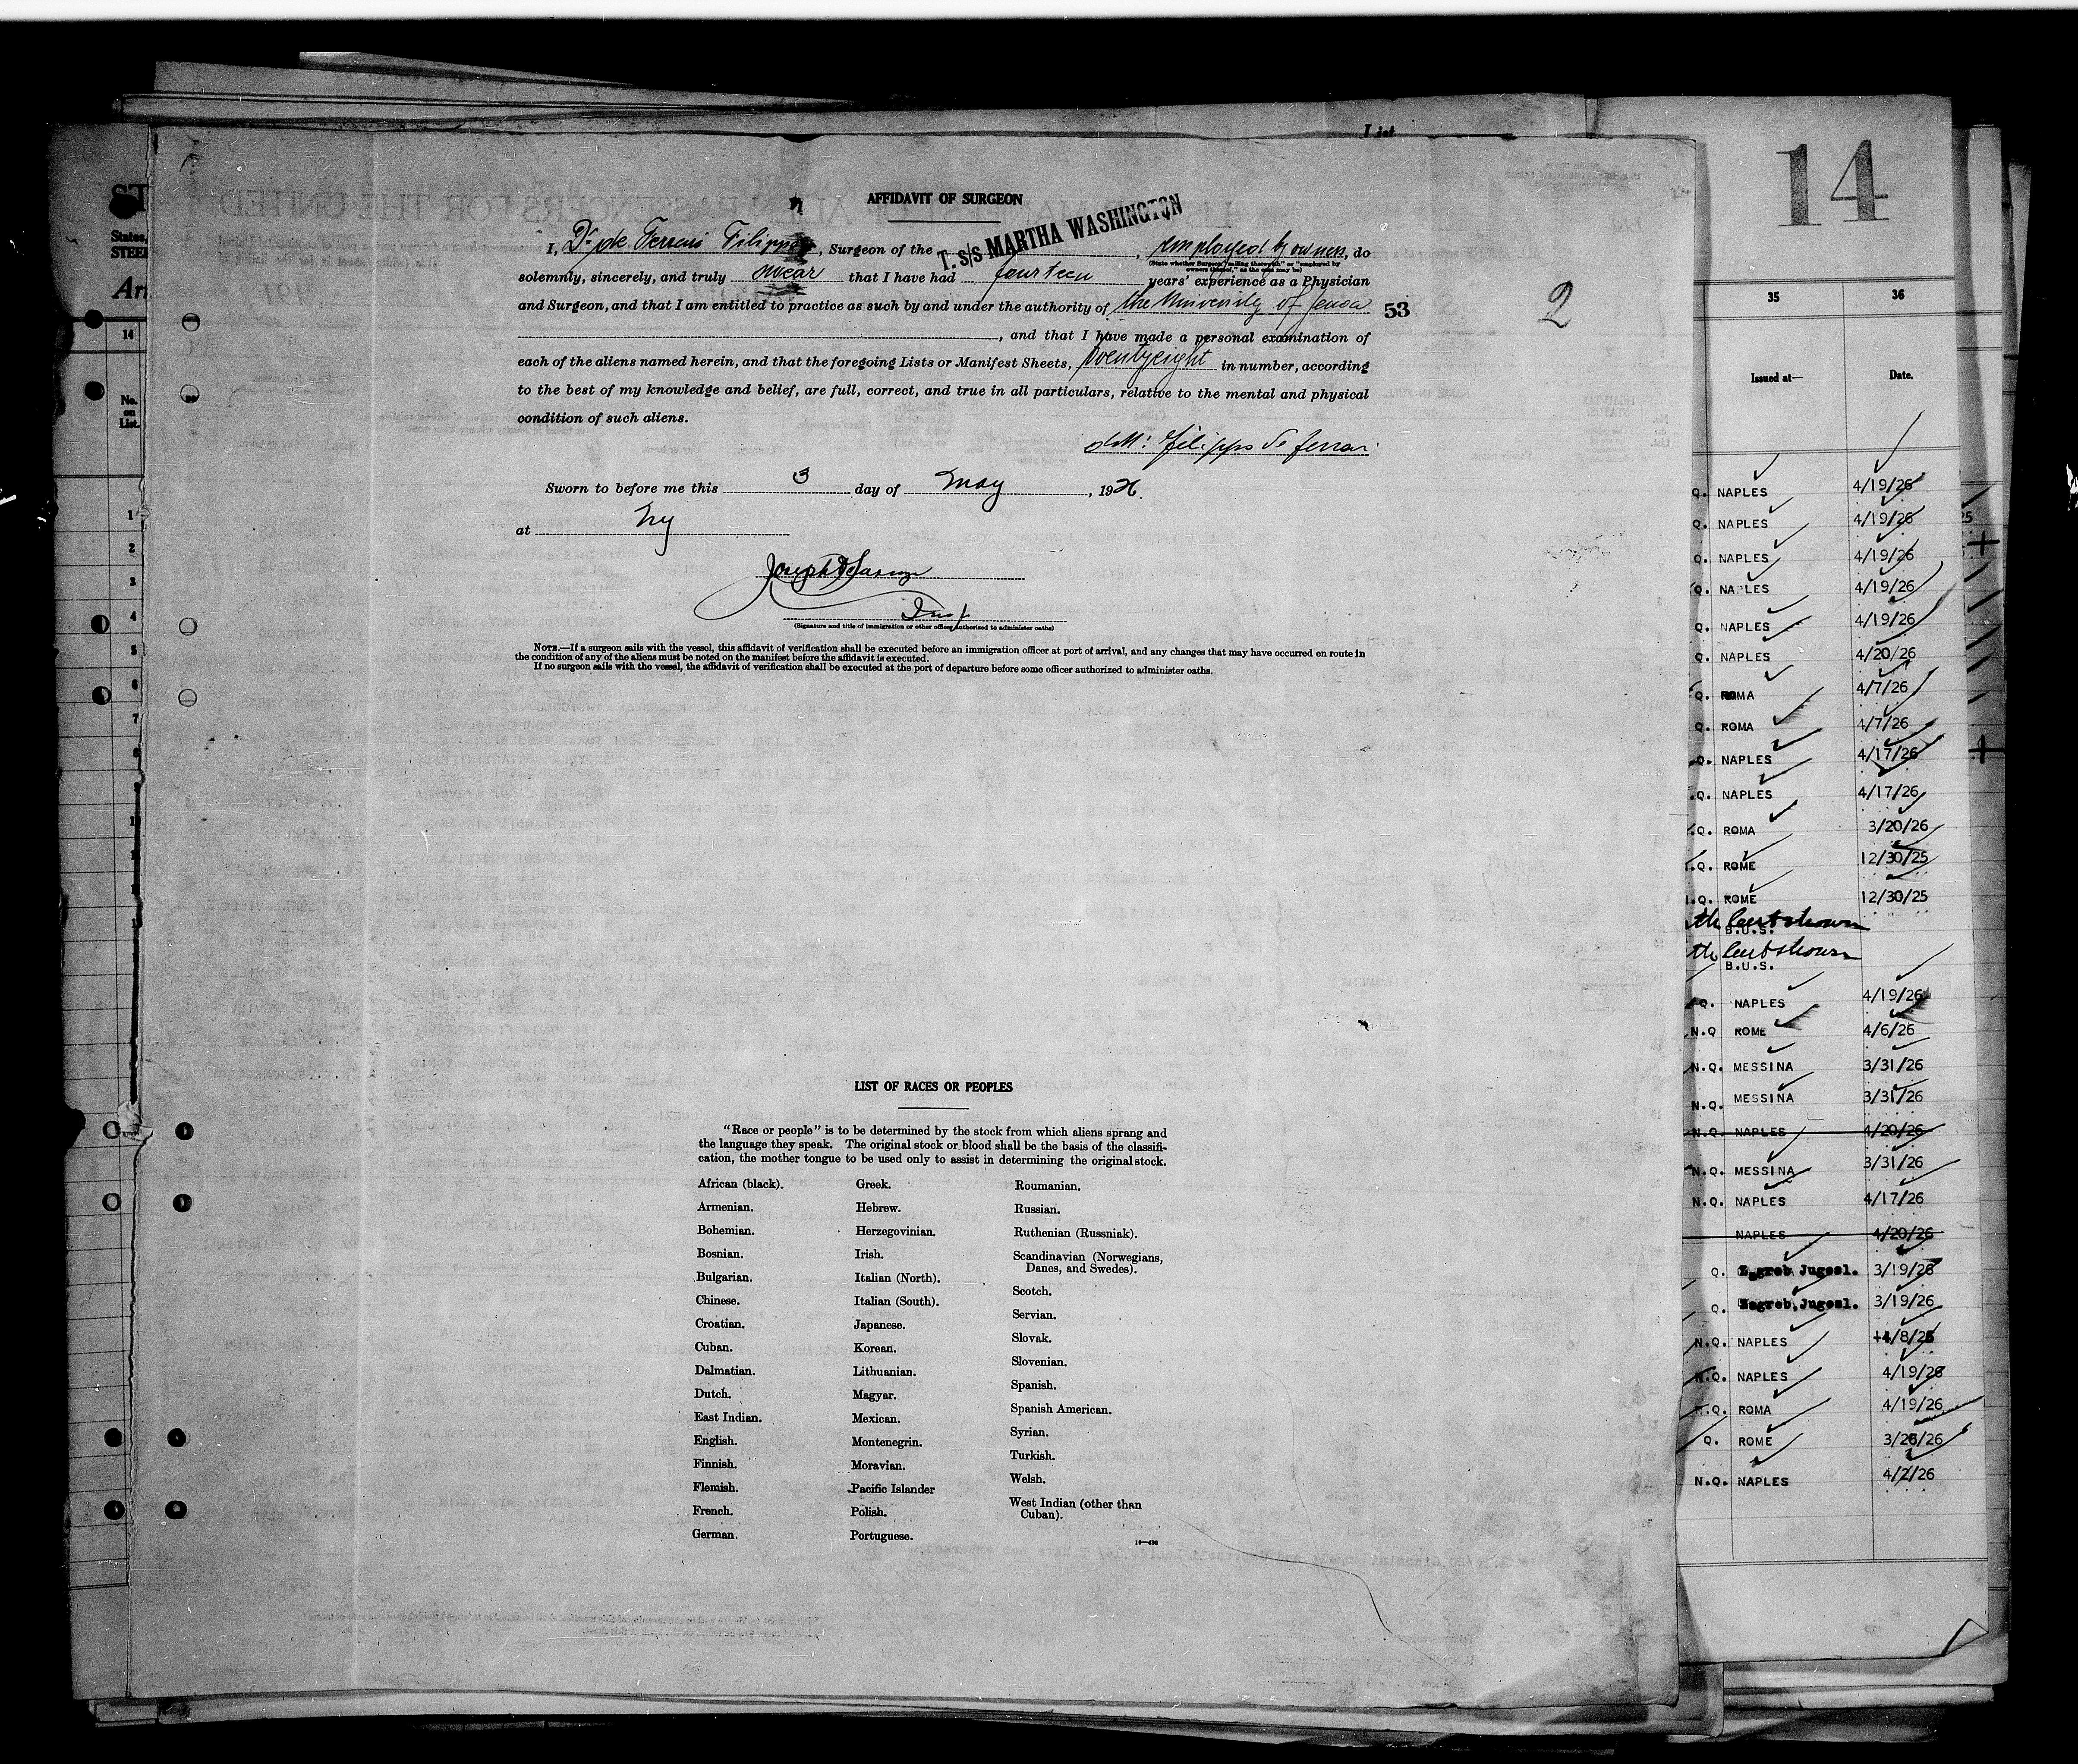 List
14
ST
States,
STEE
An
AFFIDAVIT OF SURGEON
I, Dr. de Ferrari Filippo, Surgeon of the T. S/S MARTHA WASHINGTON, employed by owners, do
(State whether Surgeon "sailing therewith" or "employed by
owners thereof," as the case may be)
solemnly, sincerely, and truly swear that I have had fourteen years' experience as a Physician
and Surgeon, and that I am entitled to practice as such by and under the authority of the University of Genoa 53
2
, and that I have made a personal examination of
each of the aliens named herein, and that the foregoing Lists or Manifest Sheets, twentyeight in number, according
to the best of my knowledge and belief, are full, correct, and true in all particulars, relative to the mental and physical
condition of such aliens.
dott: Filippo De Ferrari
Sworn to before me this 3 day of May, 1926.
at Ny
Insp
(Signature and title of immigration or other officer authorized to administer oaths)
NOTE.—If a surgeon sails with the vessel, this affidavit of verification shall be executed before an immigration officer at port of arrival, and any changes that may have occurred en route in
the condition of any of the aliens must be noted on the manifest before the affidavit is executed.
If no surgeon sails with the vessel, the affidavit of verification shall be executed at the port of departure before some officer authorized to administer oaths.
LIST OF RACES OR PEOPLES
"Race or people" is to be determined by the stock from which aliens sprang and
the language they speak. The original stock or blood shall be the basis of the classifi-
cation, the mother tongue to be used only to assist in determining the original stock.
African (black).
Armenian.
Bohemian.
Bosnian.
Bulgarian.
Chinese.
Croatian.
Cuban.
Dalmatian.
Dutch.
East Indian.
English.
Finnish.
Flemish.
French.
German.
Greek.
Hebrew.
Herzegovinian.
Irish.
Italian (North).
Italian (South).
Japanese.
Korean.
Lithuanian.
Magyar.
Mexican.
Montenegrin.
Moravian.
Pacific Islander
Polish.
Portuguese.
Roumanian.
Russian.
Ruthenian (Russniak).
Scandinavian (Norwegians,
Danes, and Swedes).
Scotch.
Servian.
Slovak.
Slovenian.
Spanish.
Spanish American.
Syrian.
Turkish.
Welsh.
West Indian (other than
Cuban).
14
No.
on
List.
1
2
3
4
5
6
7
8
9
35 36
Issued at— Date.
Q. NAPLES 4/19/26
Q. NAPLES 4/19/26
Q. NAPLES 4/19/26
Q. NAPLES 4/19/26
Q. NAPLES 4/19/26
Q. NAPLES 4/20/26
Q. ROMA 4/7/26
Q. ROMA 4/7/26
Q. NAPLES 4/17/26
Q. NAPLES 4/17/26
Q. ROMA 3/20/26
Q. ROME 12/30/25
Q. ROME 12/30/25
B.U.S.
B.U.S.
Q. NAPLES 4/19/26
N.Q ROME 4/6/26
N.Q. MESSINA 3/31/26
N.Q. MESSINA 3/31/26
N.Q. NAPLES 4/20/26
N.Q. MESSINA 3/31/26
N.Q. NAPLES 4/17/26
NAPLES 4/20/26
Q. Zagreb Jugosl. 3/19/26
Q. Zagreb, Jugosl. 3/19/26
N.Q. NAPLES 4/8/26
N.Q. NAPLES 4/19/26
Q. ROMA 4/19/26
Q. ROME 3/26/26
N.Q. NAPLES 4/2/26